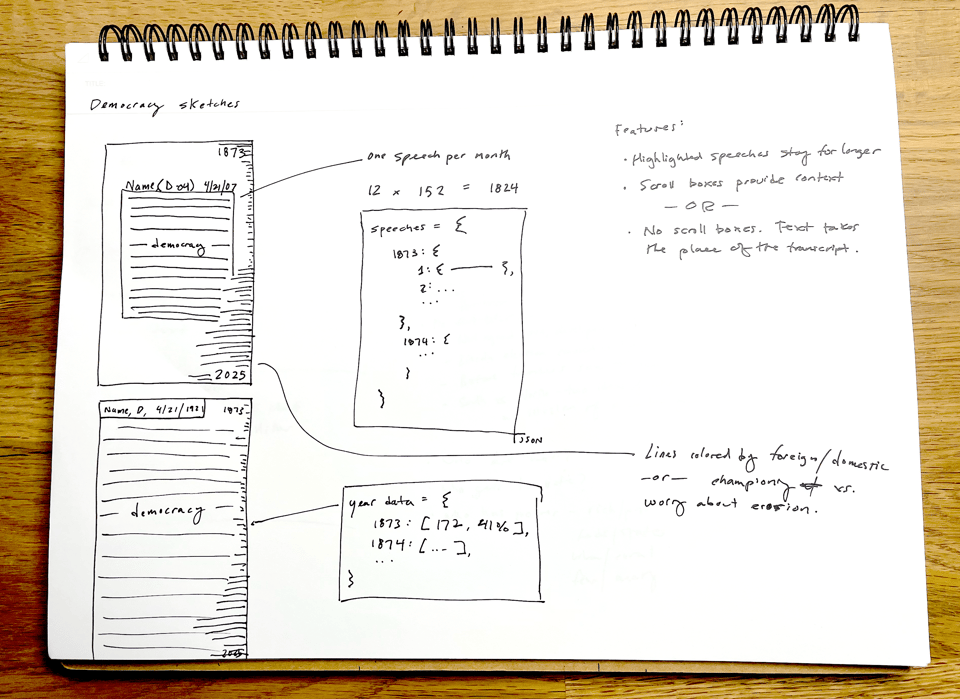 Democracy sketches
1873
Name, (D-04) 4/21/07
democracy
2025
one speech per month
12 x 152 = 1824
speeches = {
1873: {
1: { —— },
2: ...
...
},
1874: {
...
}
}
JSON
Features:
• Highlighted speeches stay for longer
• Scroll boxes provide context
— OR —
• No scroll boxes. Text takes
the place of the transcript.
Name, D, 4/21/1921
1873
democracy
2025
year data = {
1873: [172, 41%],
1874: [...],
...
}
Lines colored by foreign/domestic
—or— championing vs.
worry about erosion.